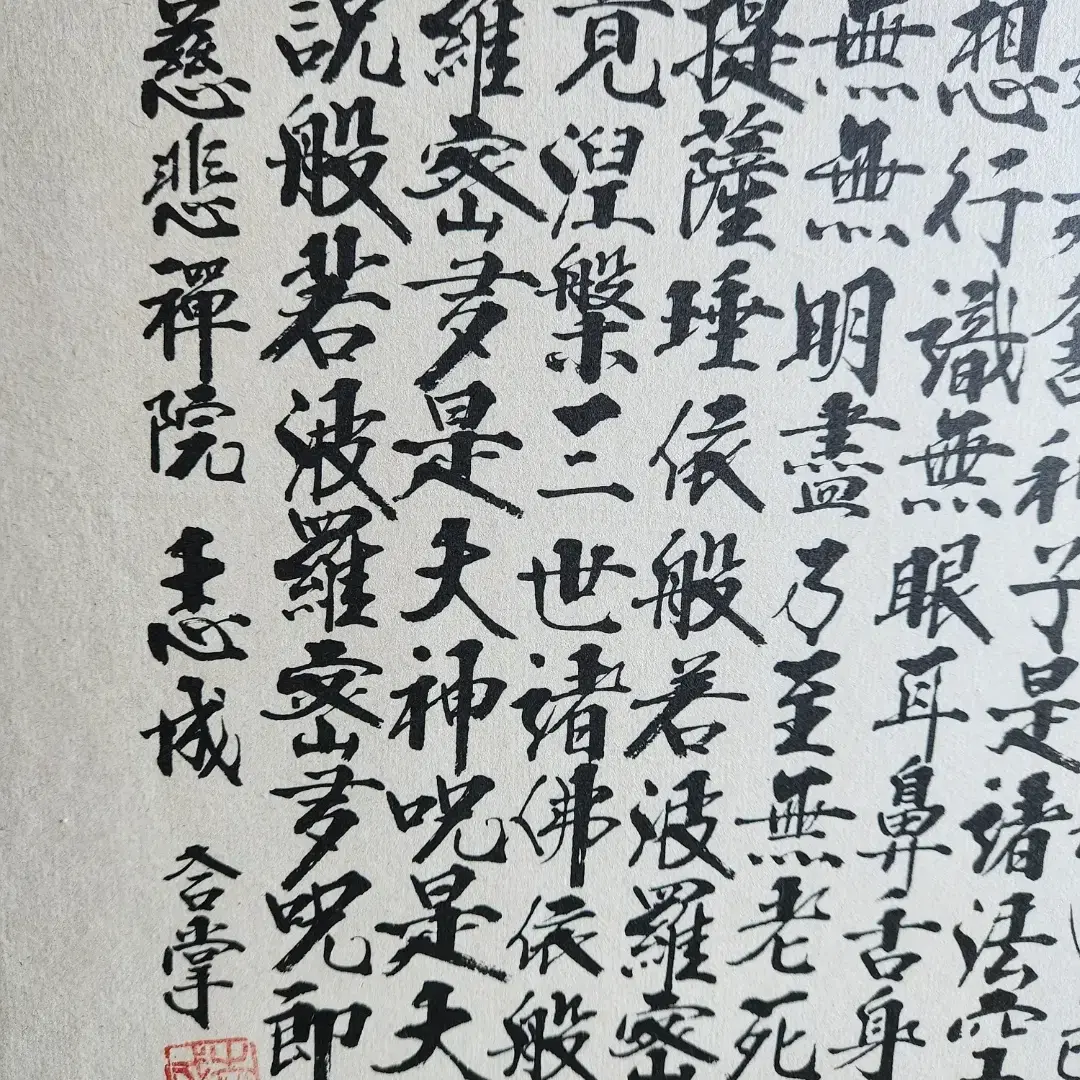 利子是諸法空
想行識無眼耳鼻舌身
無無明盡乃至無老死
提薩埵依般若波羅密
竟涅槃三世諸佛依般
羅密多是大神咒是大
說般若波羅密多咒即
慈悲禪院 志成 合掌